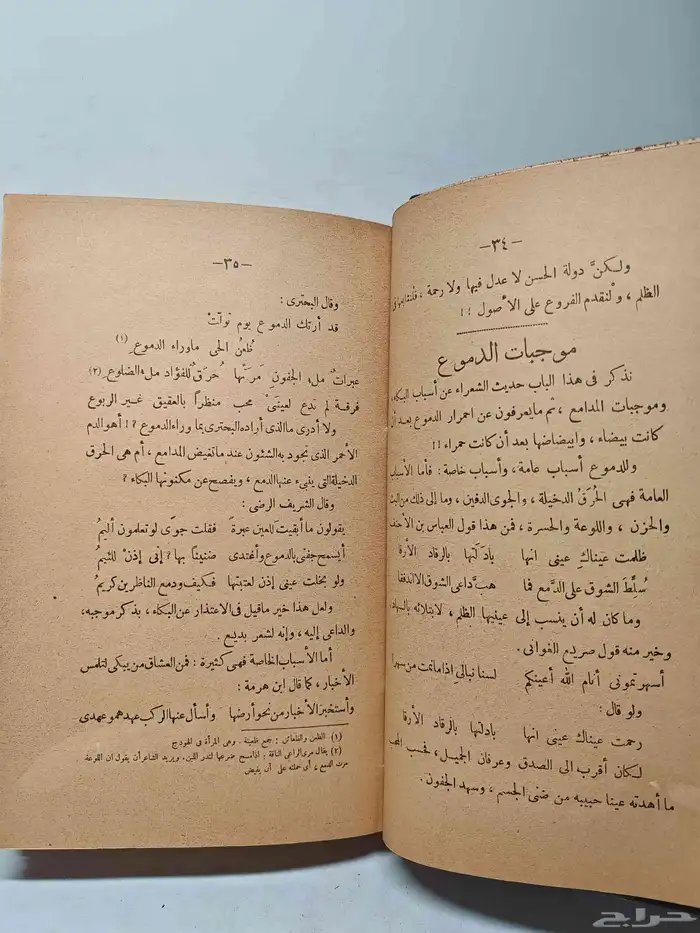 -٣٤-
ولكنَّ دولة الحسن لا عدل فيها ولا رحمة ، فلنتابعها فى
الظلم ، ولنقدم الفروع على الأصول ! !
موجبات الدموع
نذكر فى هذا الباب حديث الشعراء عن أسباب البكاء،
وموجبات المدامع ، ثم ما يعرفون عن احمرار الدموع بعد أن
كانت بيضاء، وابيضاضها بعد أن كانت حمراء ! !
وللدموع أسباب عامة، وأسباب خاصة : فأما الأسباب
العامة فهى الحُرَقُ الدخيلة ، والجوى الدفين، وما إلى ذلك من البث
والحزن ، واللوعة والحسرة ، فمن هذا قول العباس بن الأحنف
ظلمت عيناكِ عينى انها بادلتها بالرقاد الأرقا
سُلِّطَ الشوق على الدَّمع فما هبَّ داعى الشوق الا اندفقا
وما كان له أن ينسب إلى عينيها الظلم ، لابتلائه بالسهاد
وخير منه قول صريع الغوانى .
أسهرتمونى أنام الله أعينكم لسنا نبالى إذا ما نمت من سهرا
ولو قال :
رحمت عيناك عينى انها بادلتها بالرقاد الأرقا
لكان أقرب الى الصدق وعرفان الجميل ، فحسب المحب
ما أهدته عينا حبيبه من ضنى الجسم ، وسهد الجفون .
-٣٥-
وقال البحترى :
قد أرتك الدموع يوم تولتْ
ظُعنُ الحى ماوراء الدموع (١)
عبراتٌ ملء الجفون مَرَتْها حُرَقٌ للفؤاد ملء الضلوع (٢)
فرقة لم تدع لعينَىْ محب منظراً بالعقيق غير الربوع
ولا أدرى ما الذى أراده البحترى بما وراء الدموع ؟! أهو الدم
الأحمر الذى تجود به الشئون عند ما تغيض المدامع ، أم هى الحرق
الدخيلة التى ينبىء عنها الدمع ، ويفصح عن مكنونها البكاء ؟
وقال الشريف الرضى :
يقولون ما أبقيت للعين عبرة فقلت جوًى لو تعلمون أليمُ
أيسمح جفنى بالدموع وأغتدى ضنينا بها ؟ إنى إذنْ للئيمُ
ولو بخلت عينى إذن لعتبتها فكيف ودمع الناظرين كريمُ
ولعل هذا خير ماقيل فى الاعتذار عن البكاء ، بذكر موجبه،
والداعى إليه ، وإنه لشعر بديع .
أما الأسباب الخاصة فهى كثيرة : فمن العشاق من يبكى لتلمس
الأخبار ، كما قال ابن هرمة :
وأستخبر الأخبار من نحو أرضها وأسأل عنها الركب عهدهمو عهدى
(١) الظعن والظعائن : جمع ظعينة . وهى المرأة فى الهودج
(٢) يقال مرى الراعى الناقة : اذا مسح ضرعها لتدر اللبن. ويريد الشاعر أن يقول ان اللوعة
مرت الدمع ، أى حملته على أن يفيض
حراج